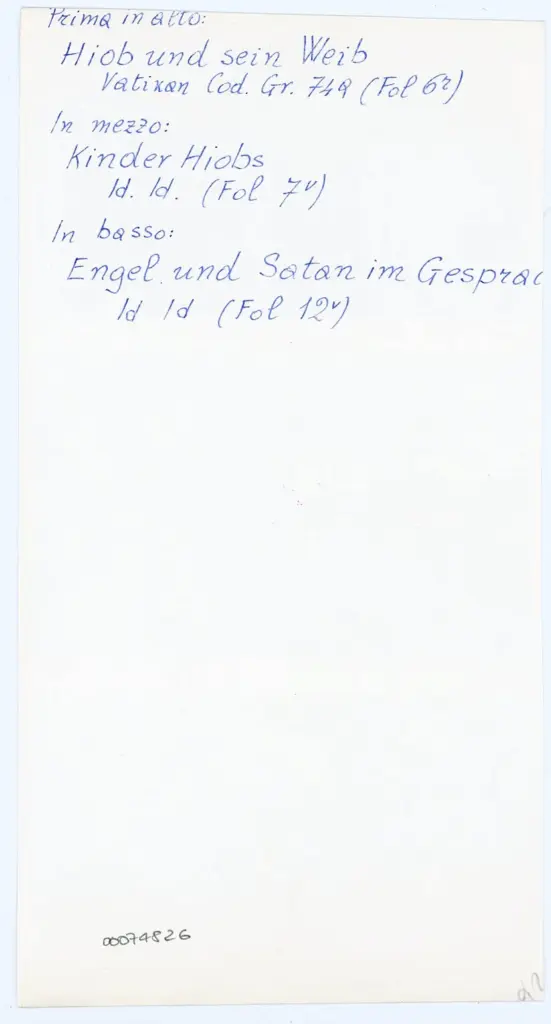 Prima in alto:
Hiob und sein Weib
Vatikan Cod. Gr. 749 (Fol 6r)
In mezzo:
Kinder Hiobs
Id. Id. (Fol 7v)
In basso:
Engel und Satan im Gesprac
Id Id (Fol 12v)
00074826